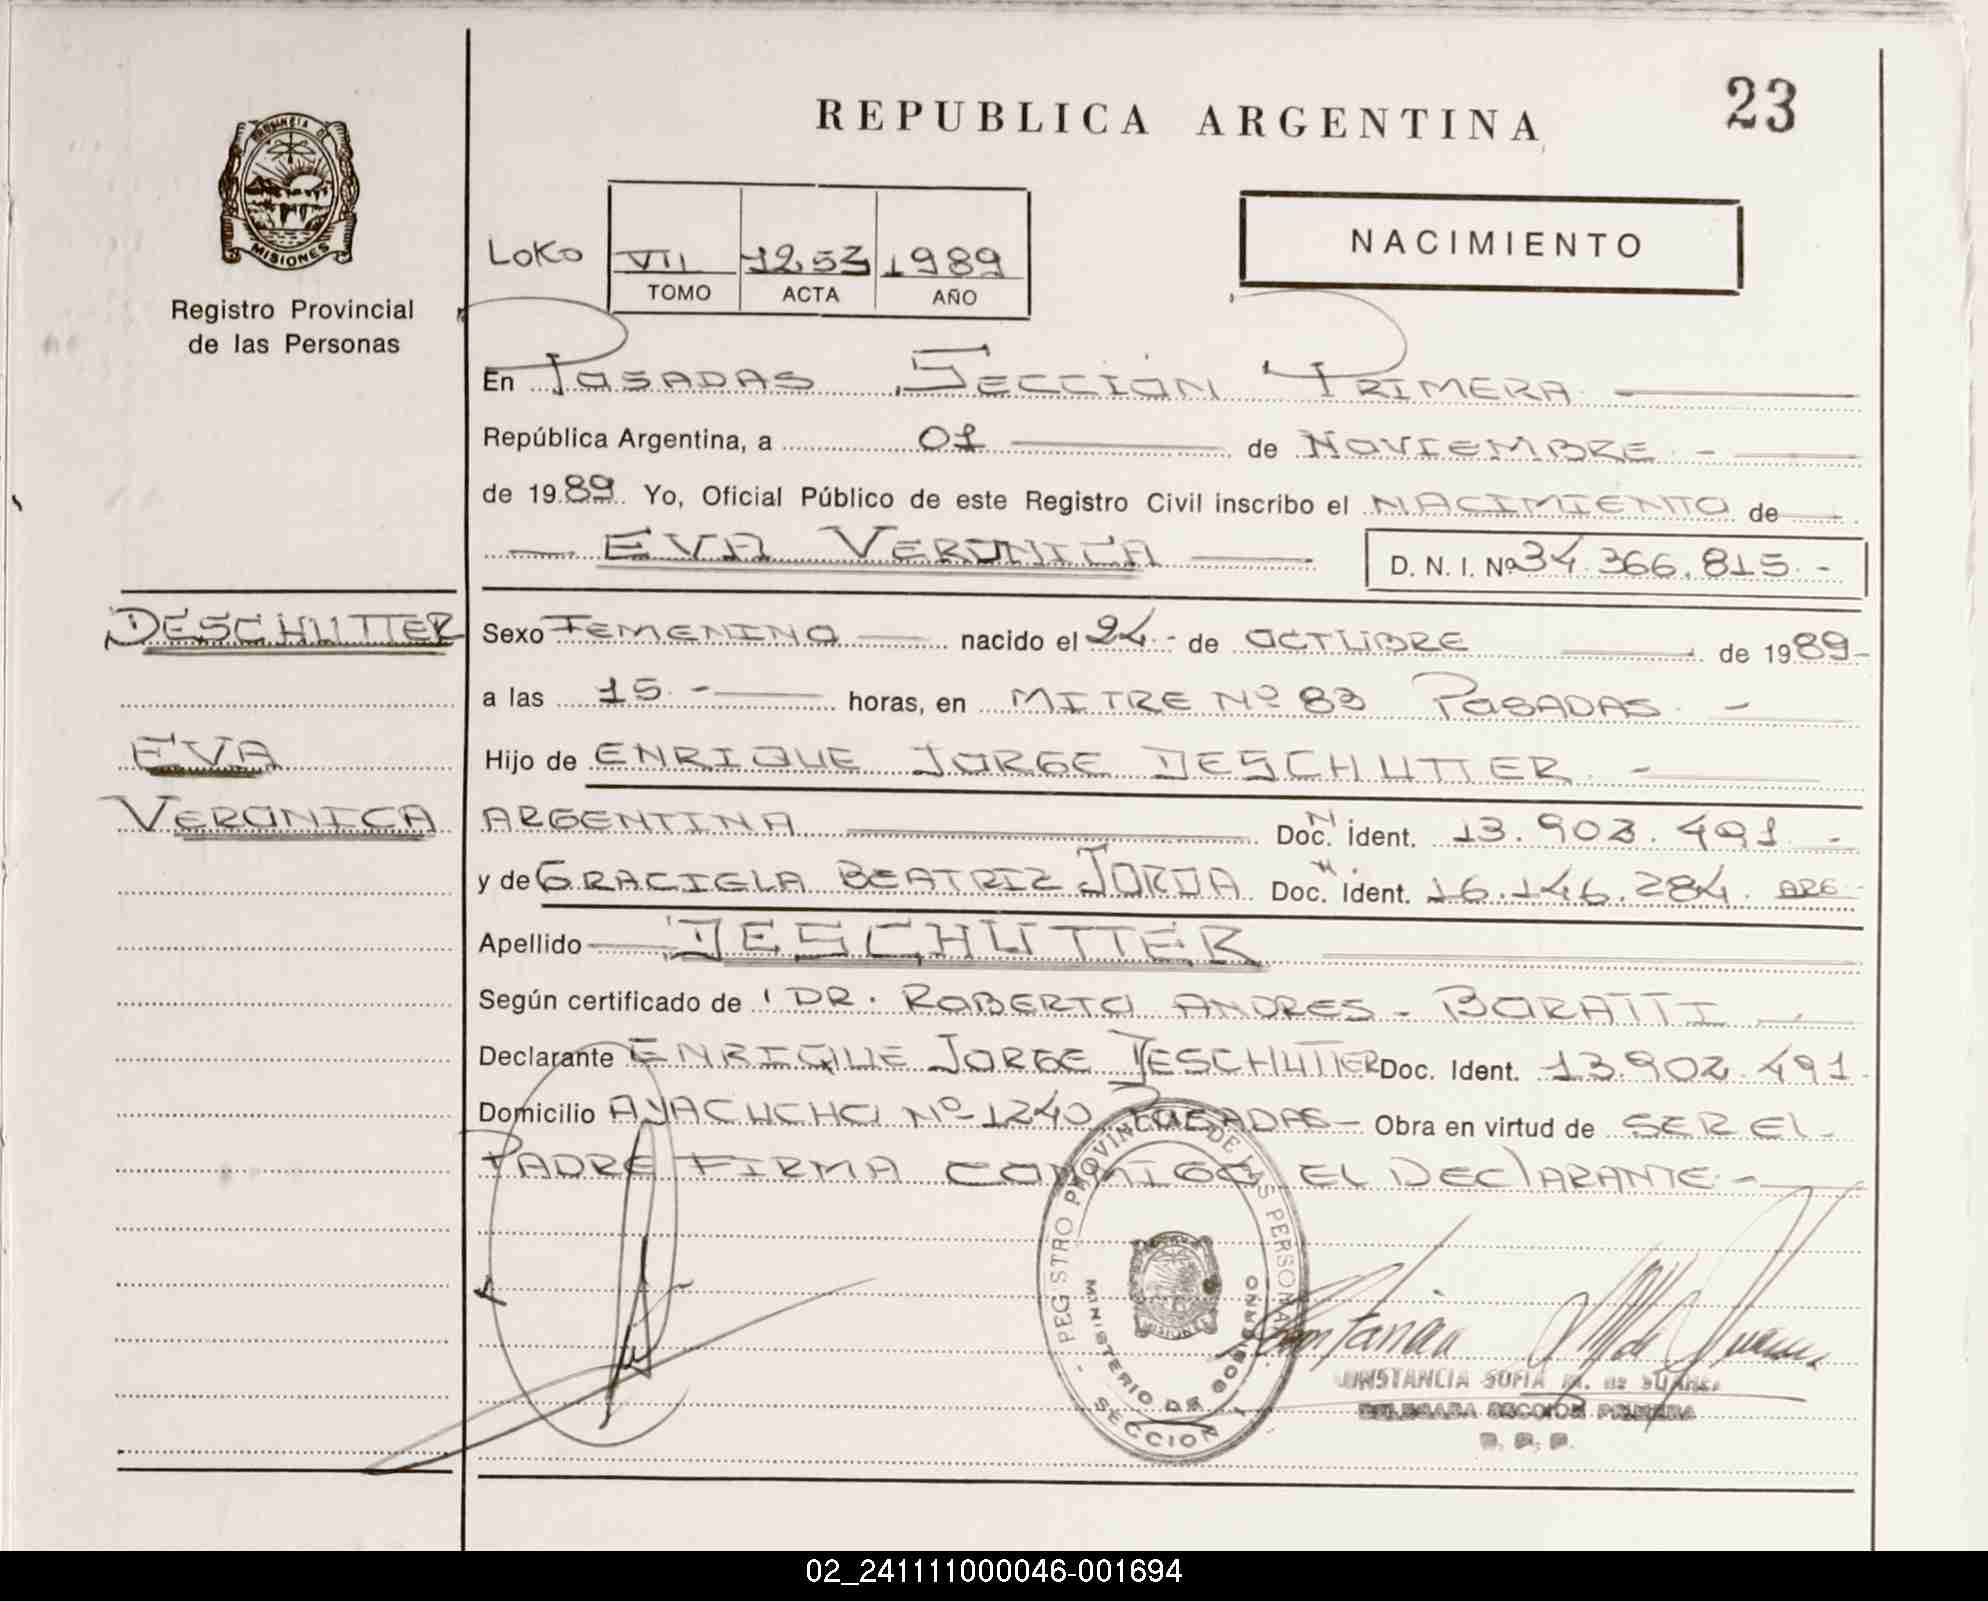 REPUBLICA ARGENTINA
23
PROVINCIA DE
MISIONES
Registro Provincial
de las Personas
LOKO
VII 1253 1989
TOMO ACTA AÑO
NACIMIENTO
En POSADAS SECCIÓN PRIMERA
República Argentina, a 01 de NOVIEMBRE -
de 1989. Yo, Oficial Público de este Registro Civil inscribo el NACIMIENTO de
EVA VERONICA
D. N. I. Nº 34.366.815.-
DESCHUTTER
EVA
VERONICA
Sexo FEMENINO nacido el 24.- de OCTUBRE de 1989-
a las 15.- horas, en MITRE Nº 83 POSADAS. -
Hijo de ENRIQUE JORGE DESCHUTTER. -
ARGENTINA Doc. N. Ident. 13.902.491 -
y de GRACIELA BEATRIZ JORDA Doc. N. Ident. 16.146.284. ARG-
Apellido DESCHUTTER
Según certificado de DR. ROBERTO ANDRES - BORATTI
Declarante ENRIQUE JORGE DESCHUTTER Doc. Ident. 13.902.491-
Domicilio AYACUCHO Nº 1240 POSADAS - Obra en virtud de SER EL
PADRE FIRMA CONMIGO EL DECLARANTE.-
REGISTRO PROVINCIAL DE LAS PERSONAS
MINISTERIO DE GOBIERNO
MISIONES
SECCION 1
CONSTANCIA SOFIA M. DE SUAREZ
DELEGADA SECCION PRIMERA
R. P. P.
02_241111000046-001694